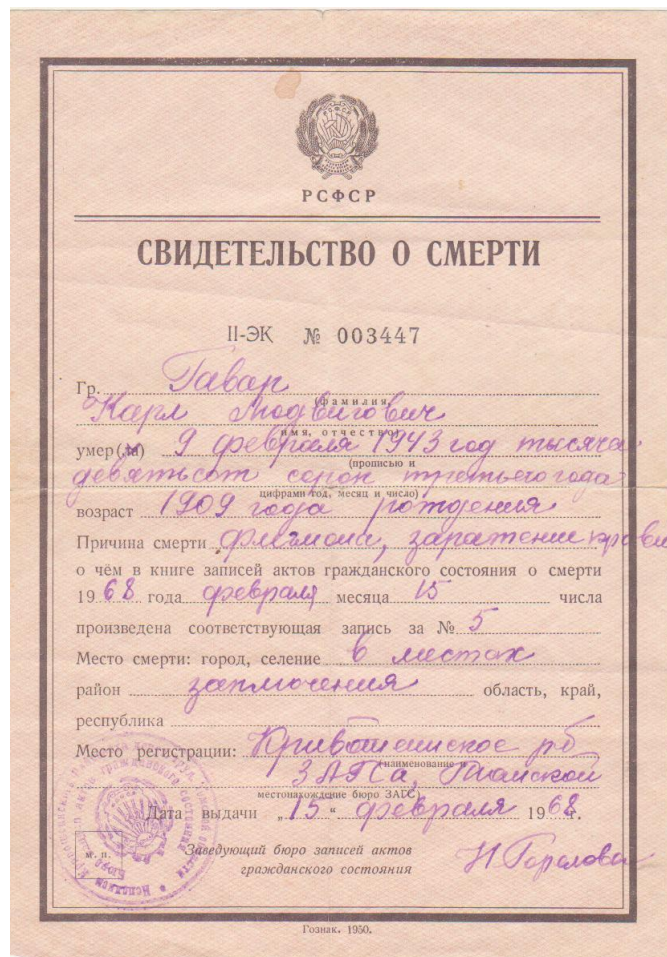 РСФСР
СВИДЕТЕЛЬСТВО О СМЕРТИ
II-ЭК № 003447
Гр. Гавар
(фамилия,
Карл Людвигович
имя, отчество)
умер(ла) 9 февраля 1943 год тысяча
(прописью и
девятьсот сорок третьего года
цифрами год, месяц и число)
возраст 1909 года рождения
Причина смерти флегмона, заражение крови
о чём в книге записей актов гражданского состояния о смерти
1968 года февраля месяца 15 числа
произведена соответствующая запись за № 5
Место смерти: город, селение в местах
район заключения область, край,
республика
Место регистрации: Кривошеинское рб
(наименование и
ЗАГСа, Томской
местонахождение бюро ЗАГС)
Дата выдачи „15“ февраля 1968г.
м. п.
Заведующий бюро записей актов
гражданского состояния
Гознак. 1950.